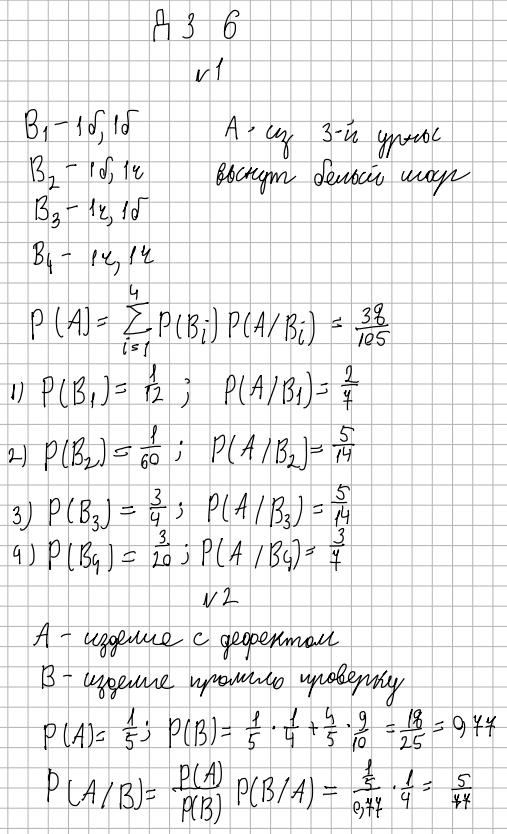 ДЗ 6
№1
B₁ - 1б, 1б
A - из 3-й урны
B₂ - 1б, 1ч
вынут белый шар
B₃ - 1ч, 1б
B₄ - 1ч, 1ч
P(A) = ∑_{i=1}^{4} P(Bᵢ) P(A/Bᵢ) = 38/105
1) P(B₁) = 1/12 ; P(A/B₁) = 2/7
2) P(B₂) = 1/60 ; P(A/B₂) = 5/14
3) P(B₃) = 3/4 ; P(A/B₃) = 5/14
4) P(B₄) = 3/20 ; P(A/B₄) = 3/7
№2
A - изделие с дефектом
B - изделие прошло проверку
P(A) = 1/5 ; P(B) = 1/5 · 1/4 + 4/5 · 9/10 = 18/25 = 0,77
P(A/B) = P(A)/P(B) P(B/A) = (1/5)/0,77 · 1/4 = 5/77